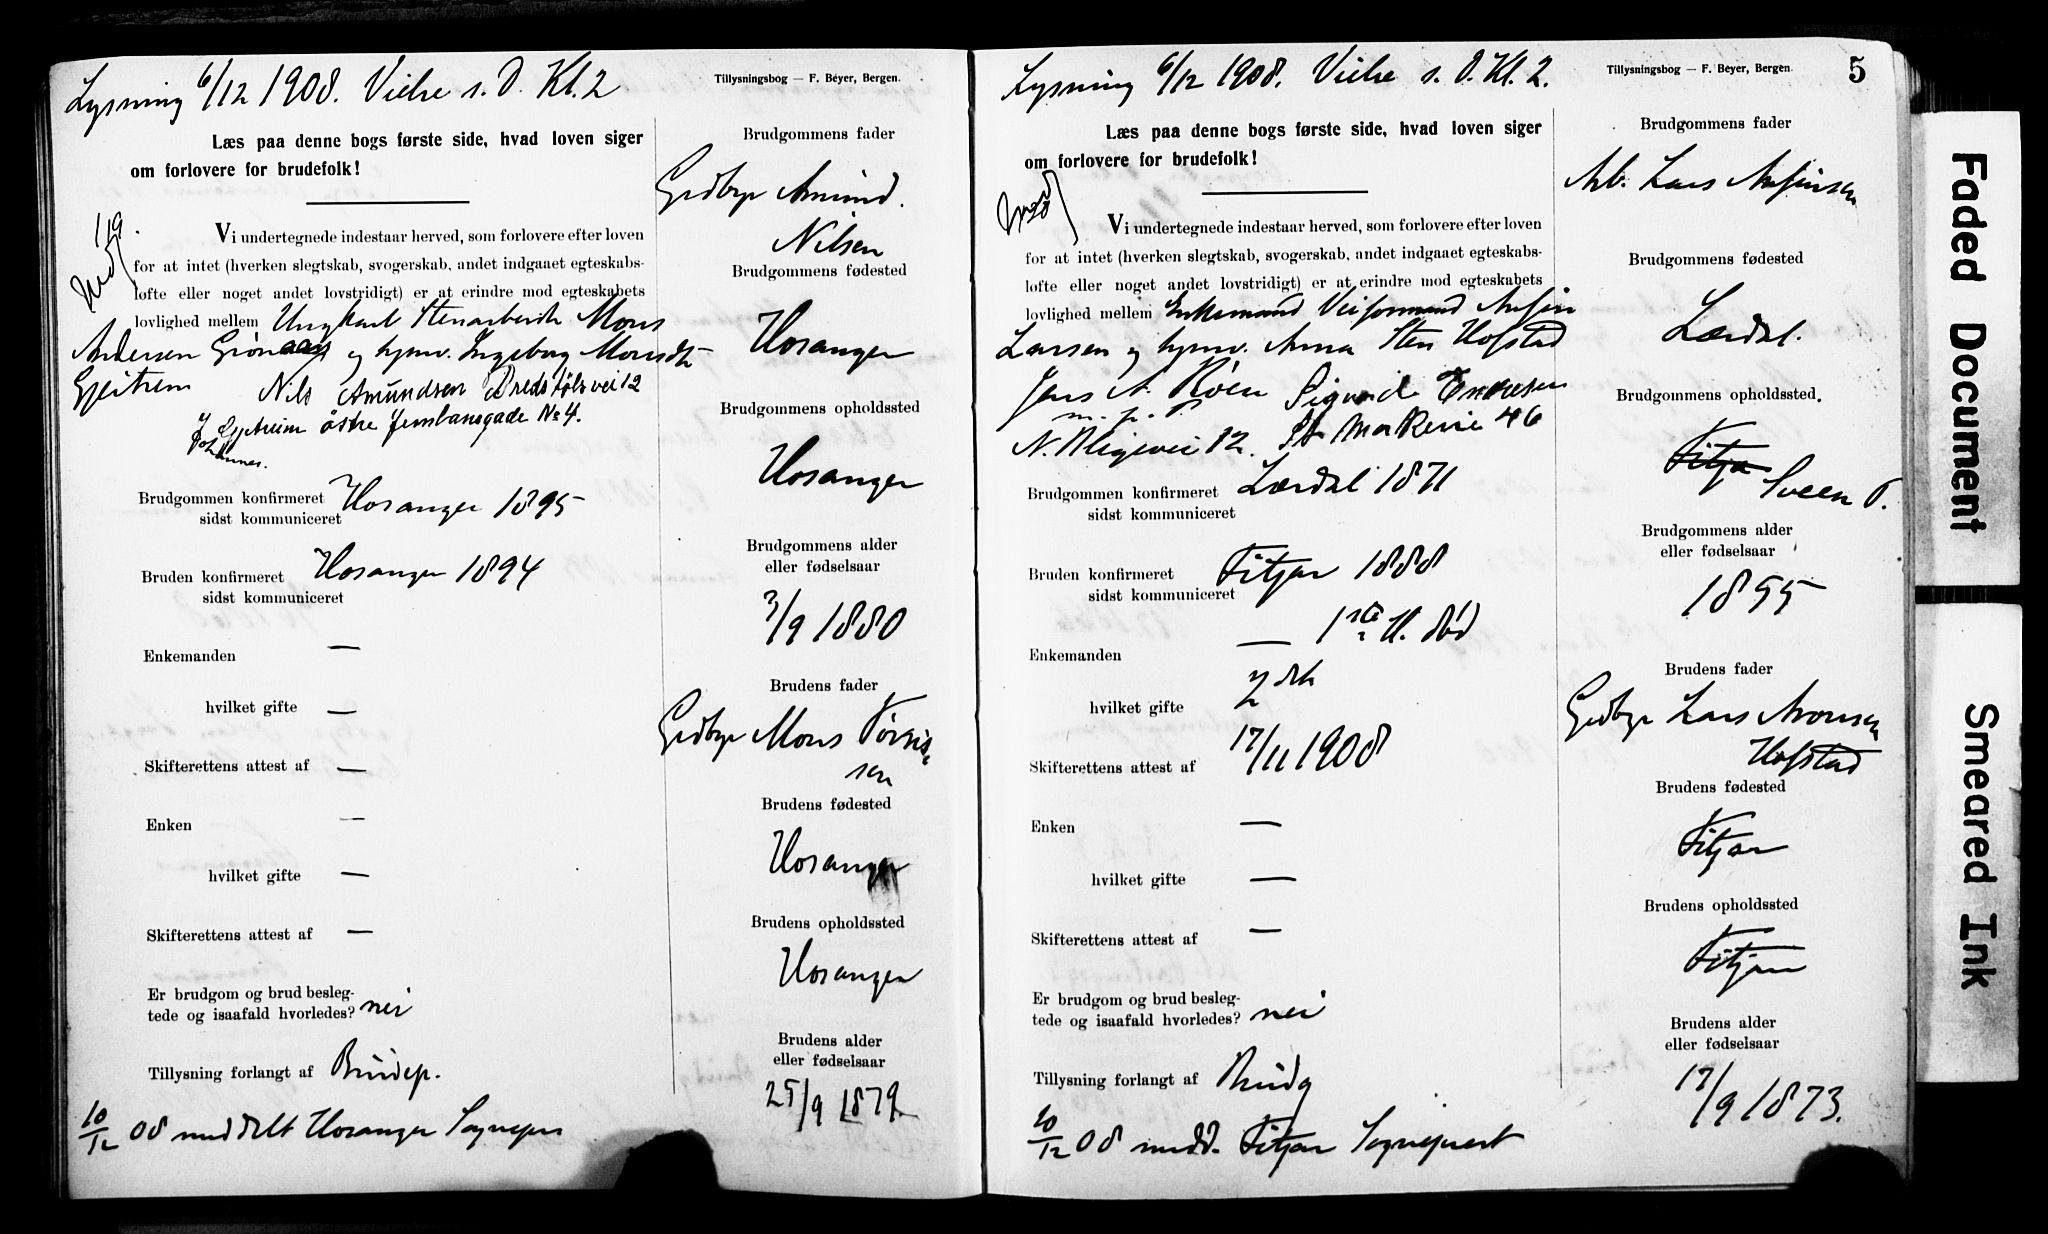 Lysning 6/12 1908. Vielse s. D. Kl. 2
Tillysningsbog — F. Beyer, Bergen.
Læs paa denne bogs første side, hvad loven siger
om forlovere for brudefolk!
Vi undertegnede indestaar herved, som forlovere efter loven
for at intet (hverken slegtskab, svogerskab, andet indgaaet egteskabs-
løfte eller noget andet lovstridigt) er at erindre mod egteskabets
lovlighed mellem Ungkarl Stenarbeider Mons
Andersen Grønaas og pigen Ingeborg Monsdtr
Gjeitrem
Nils Amundsen Bredstølsvei 12
Johannes. østre Jernbanegade No 4.
Brudgommen konfirmeret Hosanger 1895
sidst kommuniceret
Bruden konfirmeret Hosanger 1894
sidst kommuniceret
Enkemanden —
hvilket gifte —
Skifterettens attest af —
Enken —
hvilket gifte —
Skifterettens attest af —
Er brudgom og brud beslegtede
tede og isaafald hvorledes? nei
Tillysning forlangt af Brudep.
10/12 08 meddelt Hosanger Sognepr
Brudgommens fader
Grdbr Amund
Nilsen
Brudgommens fødested
Hosanger
Brudgommens opholdssted
Hosanger
Brudgommens alder
eller fødselsaar
3/9 1880
Brudens fader
Grdbr Mons
sen
Brudens fødested
Hosanger
Brudens opholdssted
Hosanger
Brudens alder
eller fødselsaar
25/9 1879
Lysning 6/12 1908. Vielse s. D. Kl. 2.
Tillysningsbog — F. Beyer, Bergen.
5
Læs paa denne bogs første side, hvad loven siger
om forlovere for brudefolk!
Vi undertegnede indestaar herved, som forlovere efter loven
for at intet (hverken slegtskab, svogerskab, andet indgaaet egteskabs-
løfte eller noget andet lovstridigt) er at erindre mod egteskabets
lovlighed mellem Enkemand Veiformand Ansjen
Larsen og Anna Sten Hofstad
Jens A. Røen Sigurd Endresen
m. p. P.
12. St Markevei 46
Brudgommen konfirmeret Lærdal 1871
sidst kommuniceret
Bruden konfirmeret Fitjar 1888
sidst kommuniceret
Enkemanden — 1ste H. død
hvilket gifte 2
Skifterettens attest af 17/11 1908
Enken —
hvilket gifte —
Skifterettens attest af —
Er brudgom og brud besleg-
tede og isaafald hvorledes? nei
Tillysning forlangt af Brudg
10/12 08 medd. Fitjar Sogneprest
Brudgommens fader
Arb. Lars Ansjensen
Brudgommens fødested
Lærdal.
Brudgommens opholdssted.
Fitjar
Sveen P.
Brudgommens alder
eller fødselsaar
1855
Brudens fader
Grdbr Lars Aronsen
Hofstad
Brudens fødested
Fitjar
Brudens opholdssted
Fitjar
Brudens alder
eller fødselsaar
17/9 1873.
Faded Document
Smeared Ink